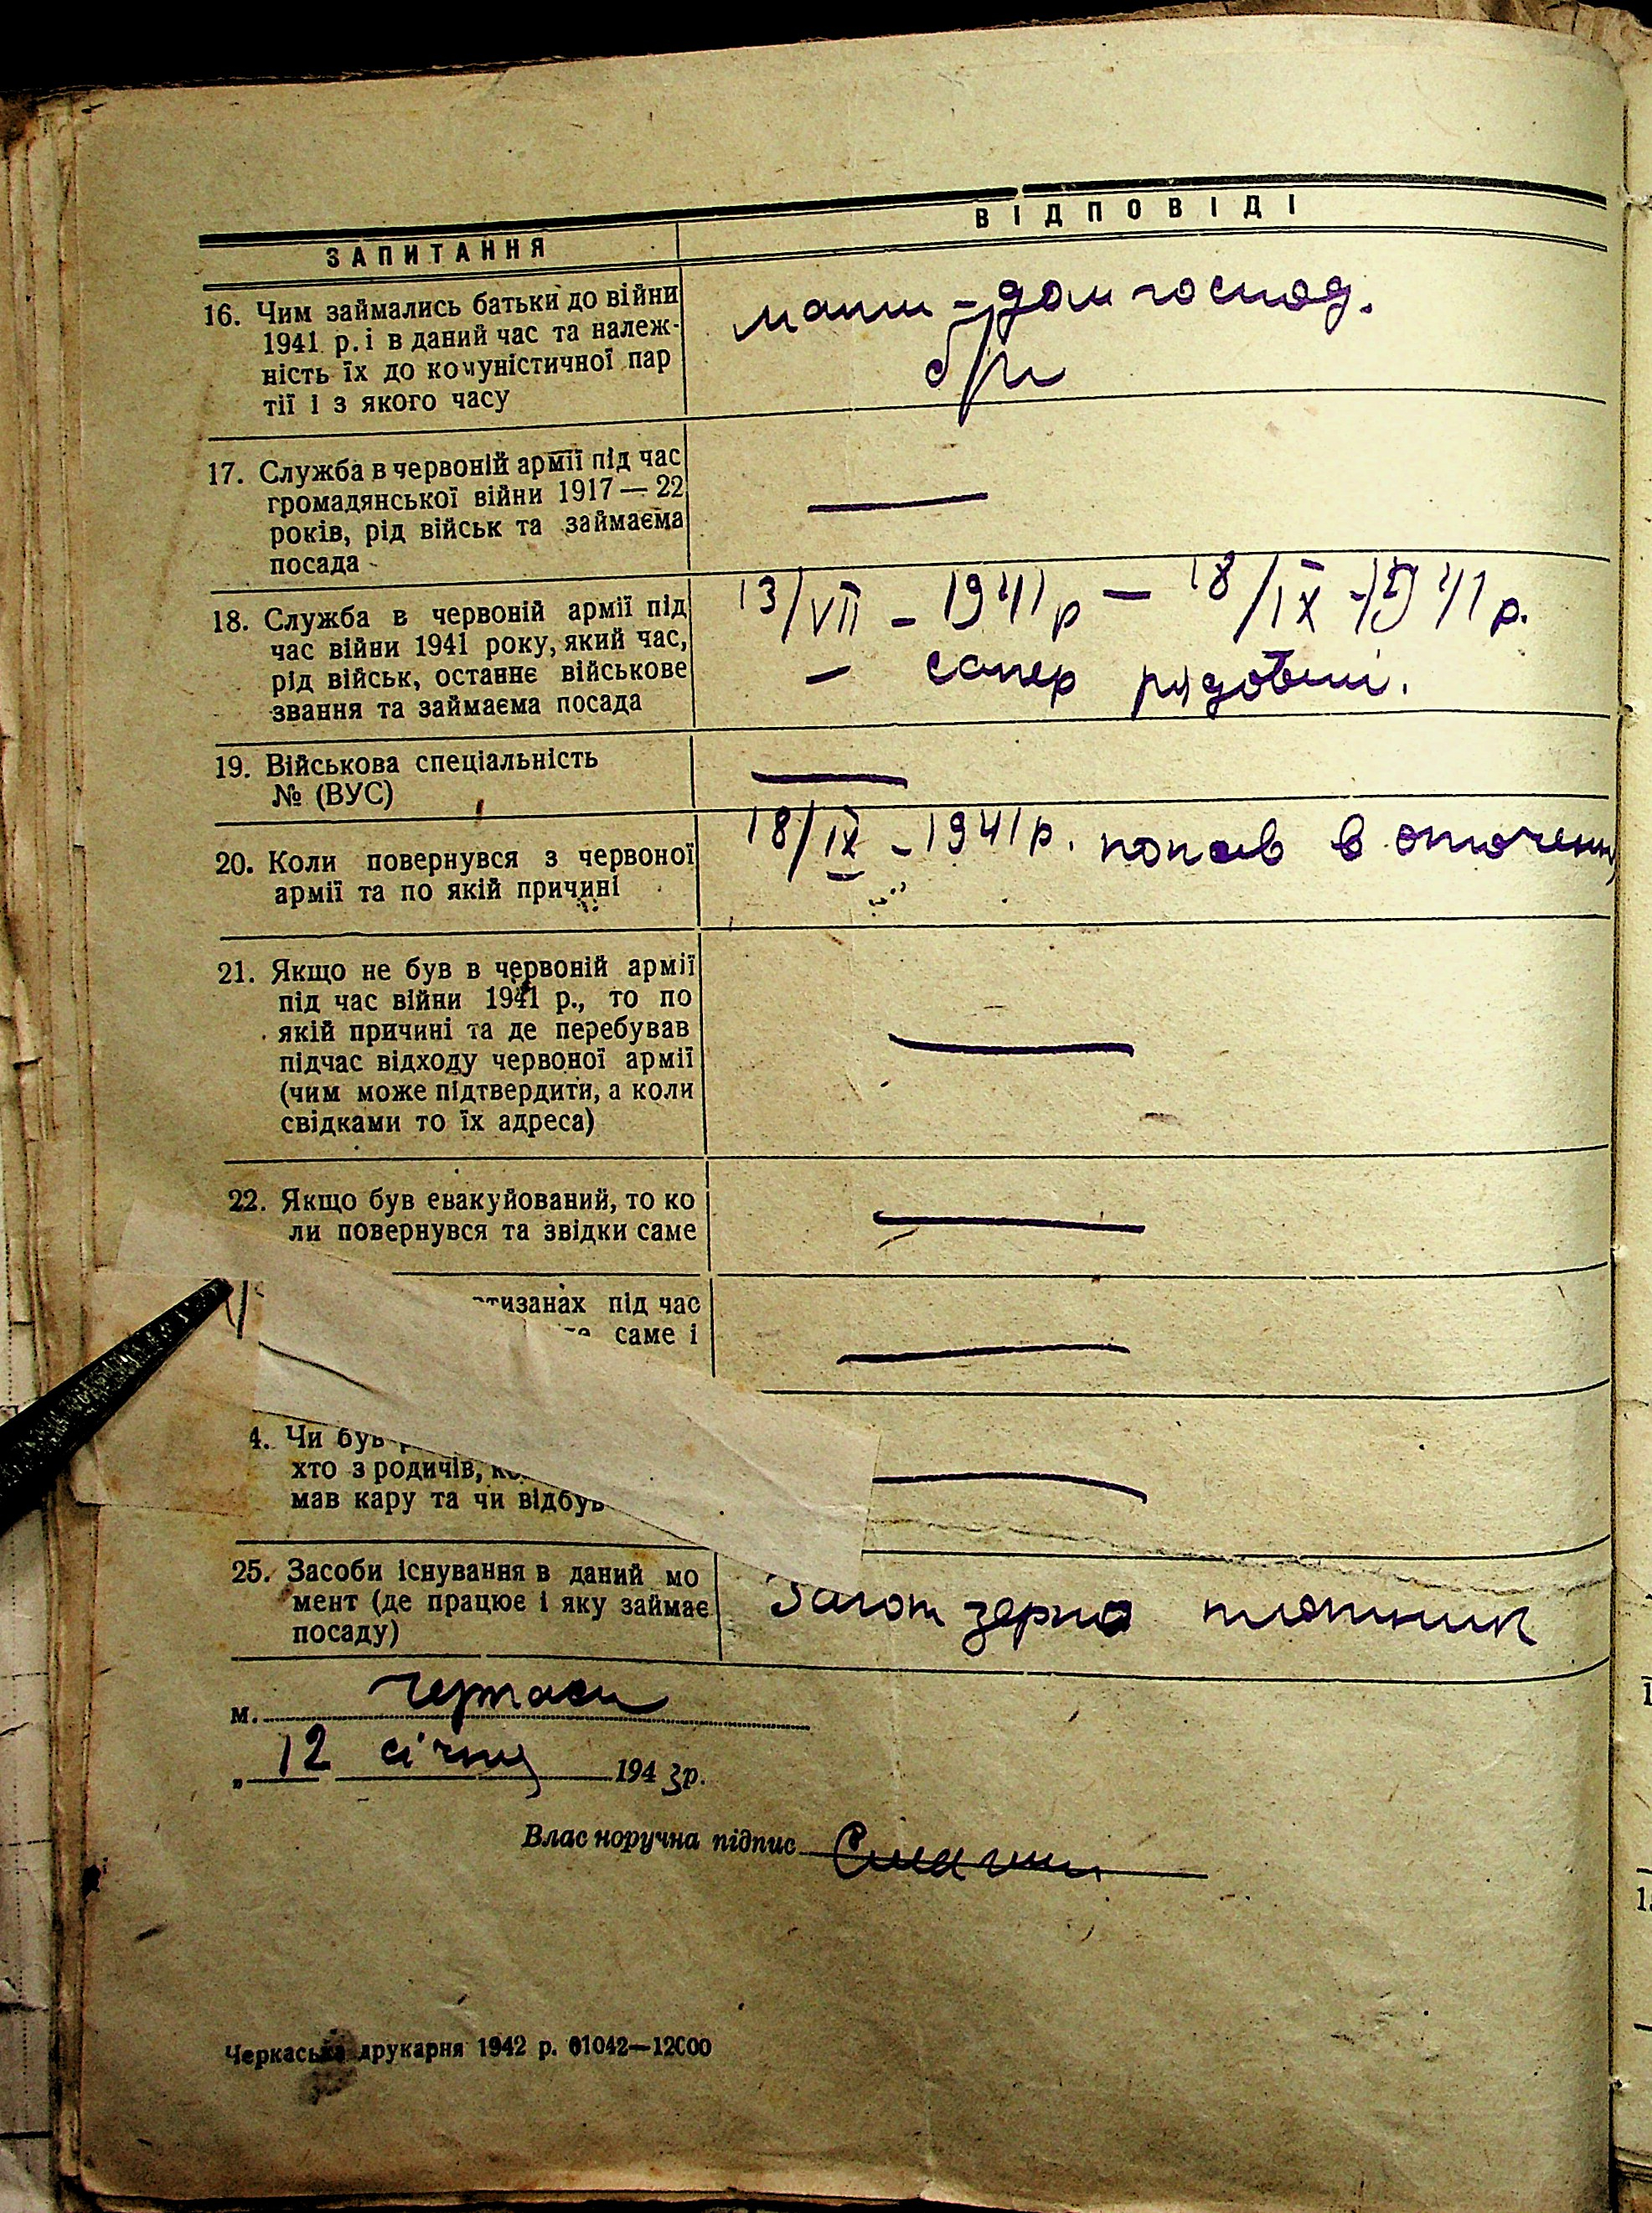 ЗАПИТАННЯ
ВІДПОВІДІ
16. Чим займались батьки до війни
1941 р. і в даний час та належ-
ність їх до комуністичної пар
тії і з якого часу
мати - дом господ.
б/п
17. Служба в червоній армії під час
громадянської війни 1917 — 22
років, рід військ та займаєма
посада
—
18. Служба в червоній армії під
час війни 1941 року, який час,
рід військ, останнє військове
звання та займаєма посада
13/VII - 1941 р — 18/IX - 1941 р.
— сапер рядовий.
19. Військова спеціальність
№ (ВУС)
—
20. Коли повернувся з червоної
армії та по якій причині
18/IX - 1941 р. попав в оточення
21. Якщо не був в червоній армії
під час війни 1941 р., то по
якій причині та де перебував
підчас відходу червоної армії
(чим може підтвердити, а коли
свідками то їх адреса)
—
22. Якщо був евакуйований, то ко
ли повернувся та звідки саме
—
тизанах під час
саме і
—
4. Чи був
хто з родичів,
мав кару та чи відбув
—
25. Засоби існування в даний мо
мент (де працює і яку займає
посаду)
Заготзерно плотник
м. Черкаси
„ 12 січня 1943 р.
Власноручна підпис
Черкаська друкарня 1942 р. 01042—12000